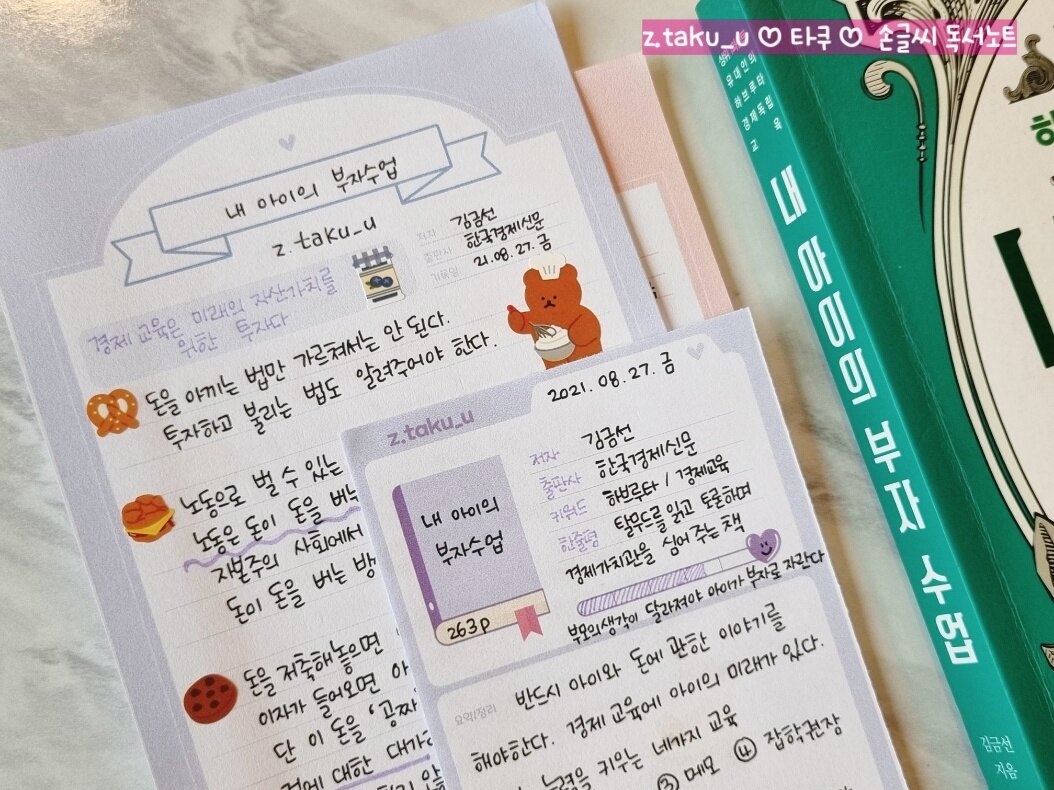 z.taku_u ♡ 타쿠 ♡ 손글씨 독서노트
내 아이의 부자수업
z.taku_u
저자 김금선
출판사 한국경제신문
기록일 21.08.27.금
경제 교육은 미래의 자산가치를
위한 투자다
돈을 아끼는 법만 가르쳐서는 안 된다.
투자하고 불리는 법도 알려주어야 한다.
노동으로 벌 수 있는
노동은 돈이 돈을 버는
자본주의 사회에서
돈이 돈을 버는 방
돈을 저축해놓으면
이자가 들어오면 아
단 이 돈을 '공짜
것에 대한 대가
2021.08.27.금
z.taku_u
저자 김금선
출판사 한국경제신문
키워드 하브루타 / 경제교육
한줄평 탈무드를 읽고 토론하며
경제가치관을 심어 주는 책
내 아이의
부자수업
263p
부모의생각이 달라져야 아이가 부자로 자란다
요약/정리
반드시 아이와 돈에 관한 이야기를
해야한다. 경제 교육에 아이의 미래가 있다.
능력을 키우는 네가지 교육
③ 메모 ④ 잡학권장
유대인의
하브루타
경제독립
교육
내 아이의 부자 수업
김금선
지음